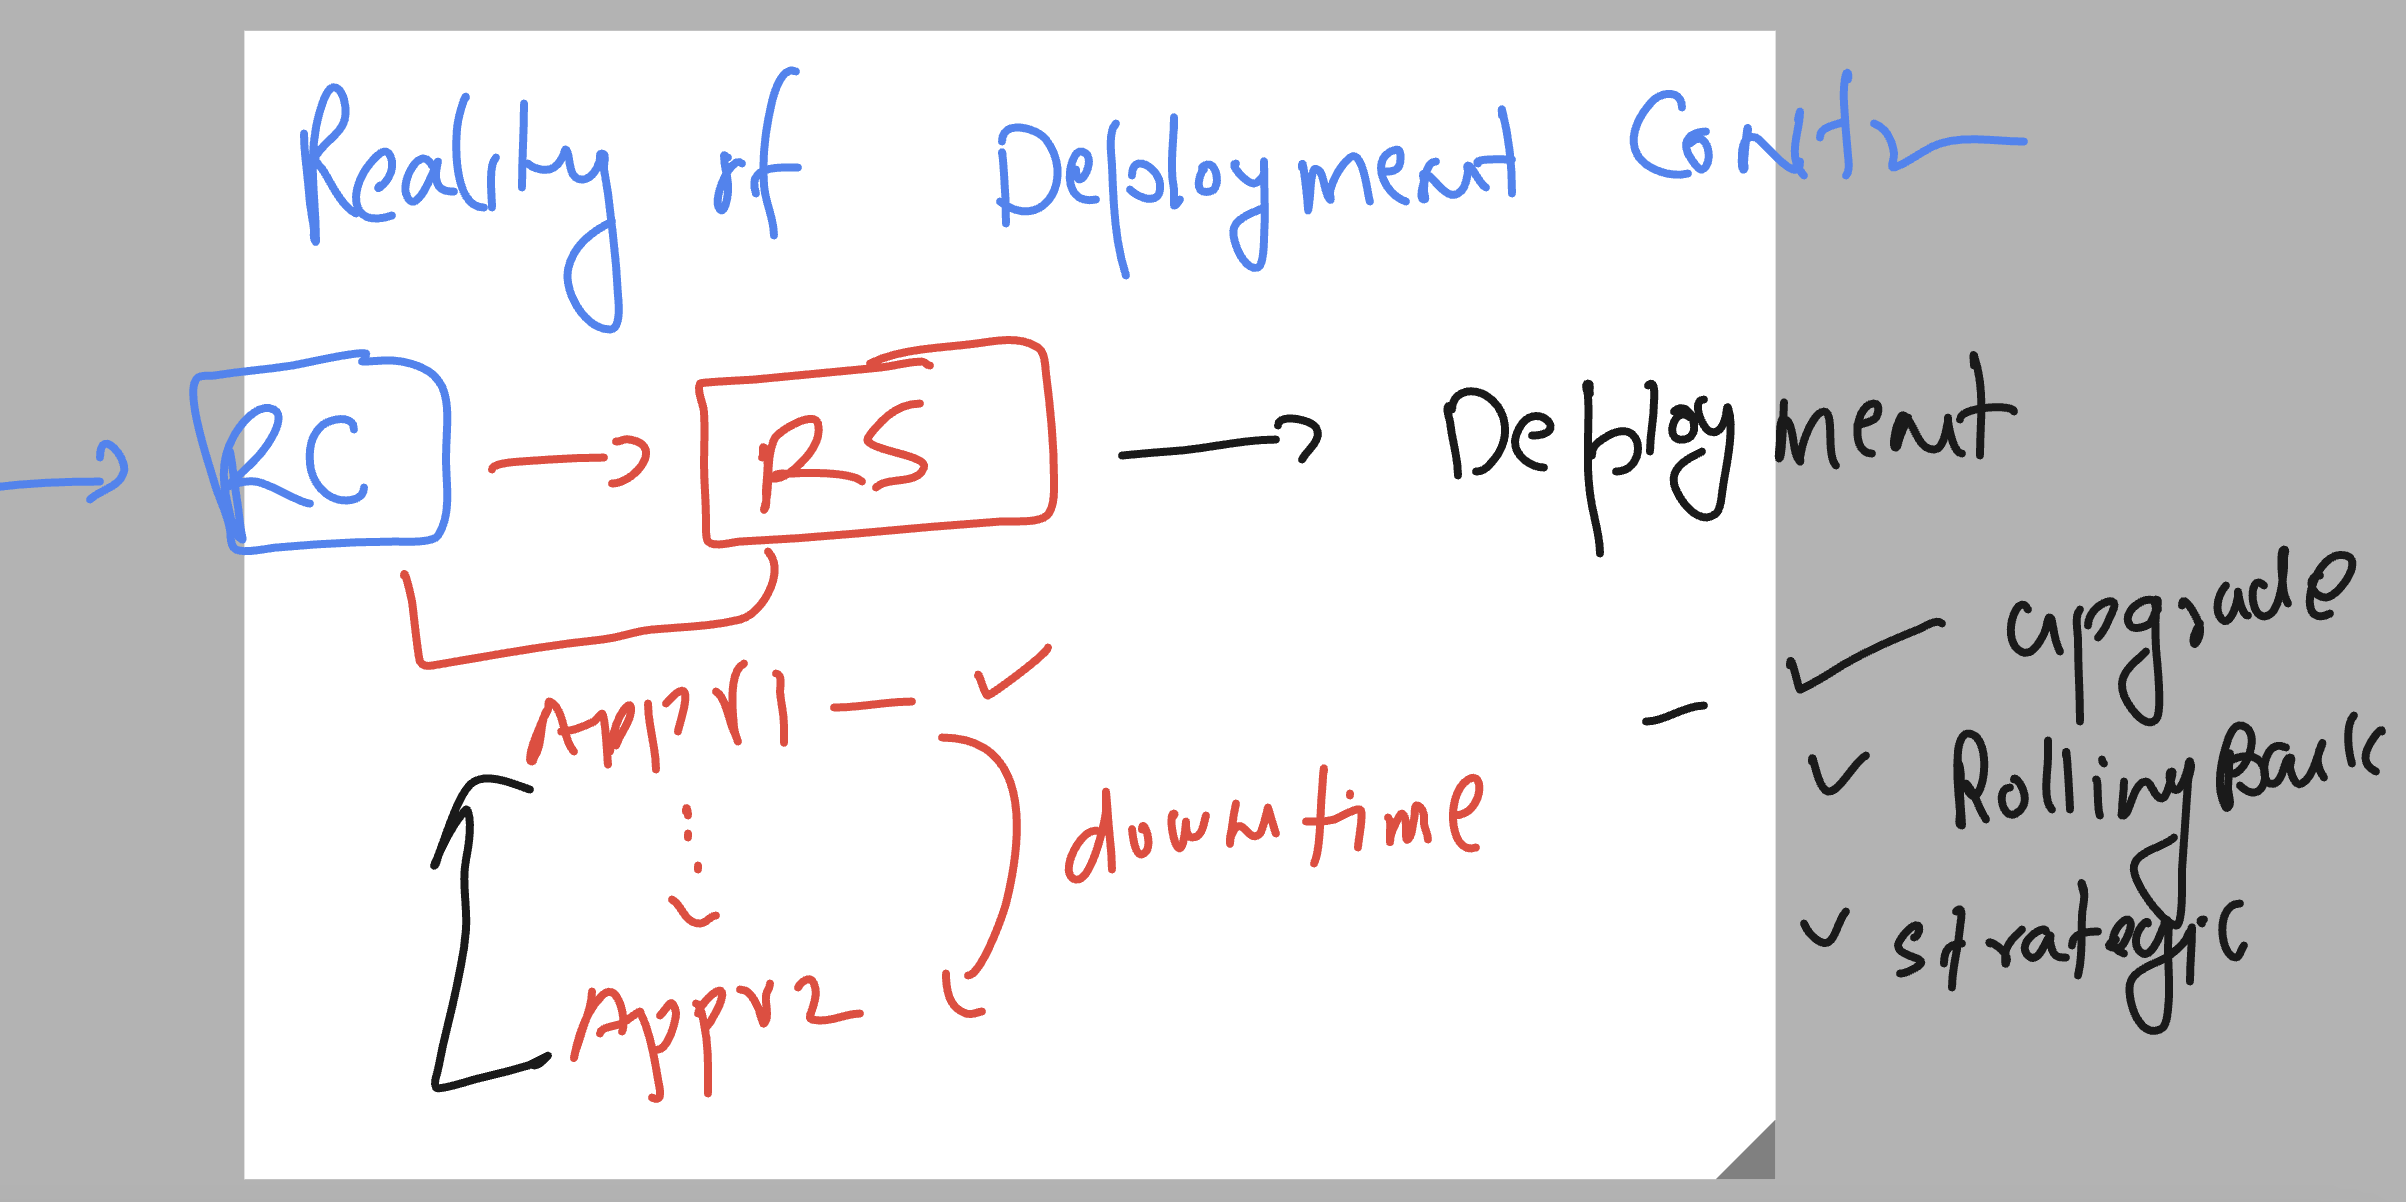 Reality of Deployment Contr
RC → RS → Deployment
AppV1 — ✓
downtime
AppV2
✓ upgrade
✓ RollingBack
✓ strategic